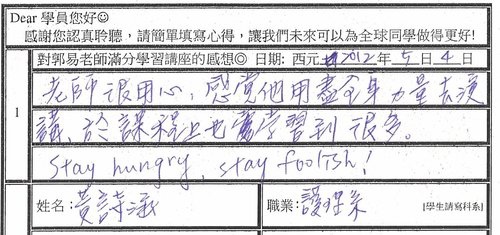 Dear 學員您好☺
感謝您認真聆聽，請簡單填寫心得，讓我們未來可以為全球同學做得更好!
對郭易老師滿分學習講座的感想◎ 日期: 西元 2012 年 5 月 4 日
1
老師很用心，感覺他用盡全身力量去演
講，於課程上也學習到很多。
Stay hungry, stay foolish!
姓名: 黃詩涵
職業: 護理系
[學生請寫科系]